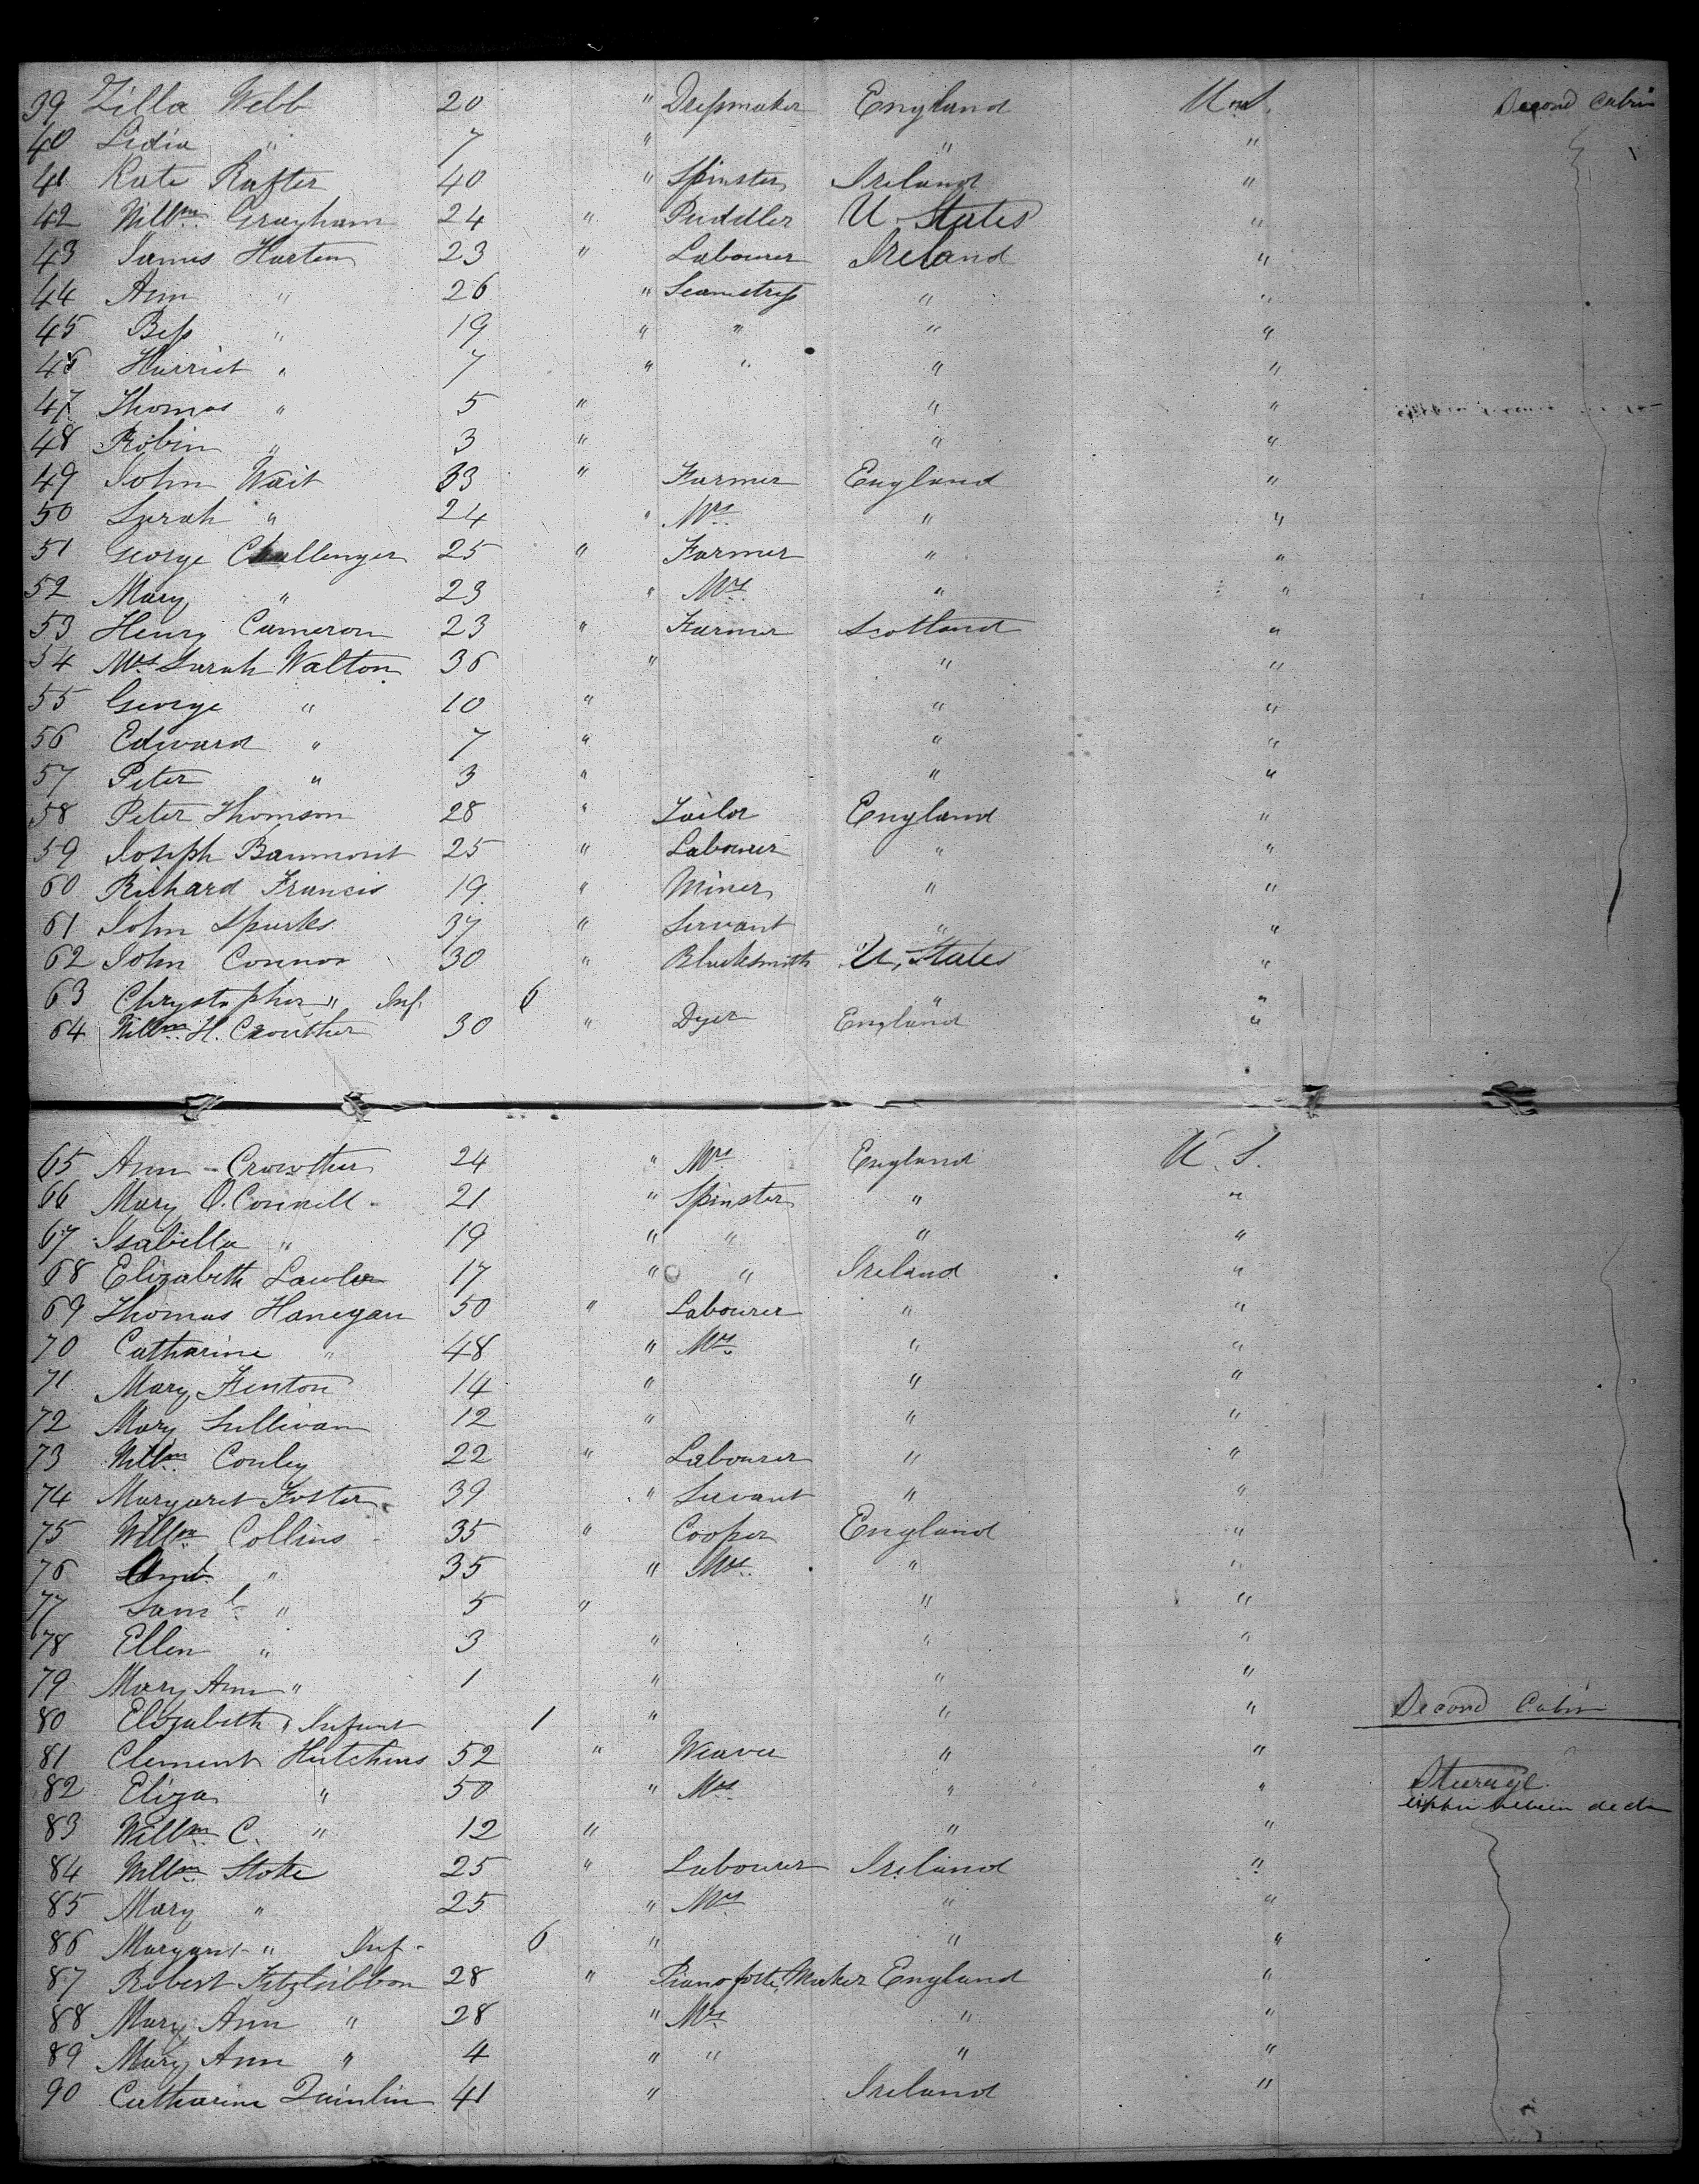 39 Zilla Webb 20 " Dressmaker England U.S. Second Cabin
40 Lidia " 7 " " "
41 Kate Rafter 40 " Spinster Ireland "
42 Willm Grayham 24 " Puddler U. States "
43 James Harten 23 " Labourer Ireland "
44 Ann " 26 " Seamstress " "
45 Bess " 19 " " " "
46 Harriet " 7 " " " "
47 Thomas " 5 " " "
48 Robin " 3 " " "
49 John Wait 33 " Farmer England "
50 Sarah " 24 " Mrs " "
51 George Challenger 25 " Farmer " "
52 Mary " 23 " Mrs " "
53 Henry Cameron 23 " Farmer Scotland "
54 Mrs Sarah Walton 36 " " "
55 George " 10 " " "
56 Edward " 7 " " "
57 Peter " 3 " " "
58 Peter Thomson 28 " Tailor England "
59 Joseph Baumont 25 " Labourer " "
60 Richard Francis 19 " Miner " "
61 John Spurks 37 " Servant " "
62 John Connor 30 " Blacksmith U. States "
63 Chrystopher " Inf. 6 " "
64 Willm H. Crowther 30 " Dyer England "
65 Ann Crowther 24 " Mrs England U.S.
66 Mary O.Connell 21 " Spinster " "
67 Isabella " 19 " " " "
68 Elizabeth Lawler 17 " " Ireland "
69 Thomas Hanegan 50 " Labourer " "
70 Catharine " 48 " Mrs " "
71 Mary Fenton 14 " " "
72 Mary Sullivan 12 " " "
73 Willm Conley 22 " Labourer " "
74 Margaret Foster 39 " Servant " "
75 Willm Collins 35 " Cooper England "
76 " 35 " Mrs " "
77 Saml " 5 " " "
78 Ellen " 3 " " "
79 Mary Ann " 1 " " "
80 Elizabeth " Infant 1 " " " Second Cabin
81 Clement Hutchins 52 " Weaver " "
82 Eliza " 50 " Mrs " " Steerage
83 Willm C. " 12 " " " deck
84 Willm Stoke 25 " Labourer Ireland "
85 Mary " 25 " Mrs " "
86 Margaret " Inf. 6 " " "
87 Robert FitzGibbon 28 " Pianoforte Maker England "
88 Mary Ann " 28 " Mrs " "
89 Mary Ann " 4 " " " "
90 Catharine Quinlin 41 " Ireland "